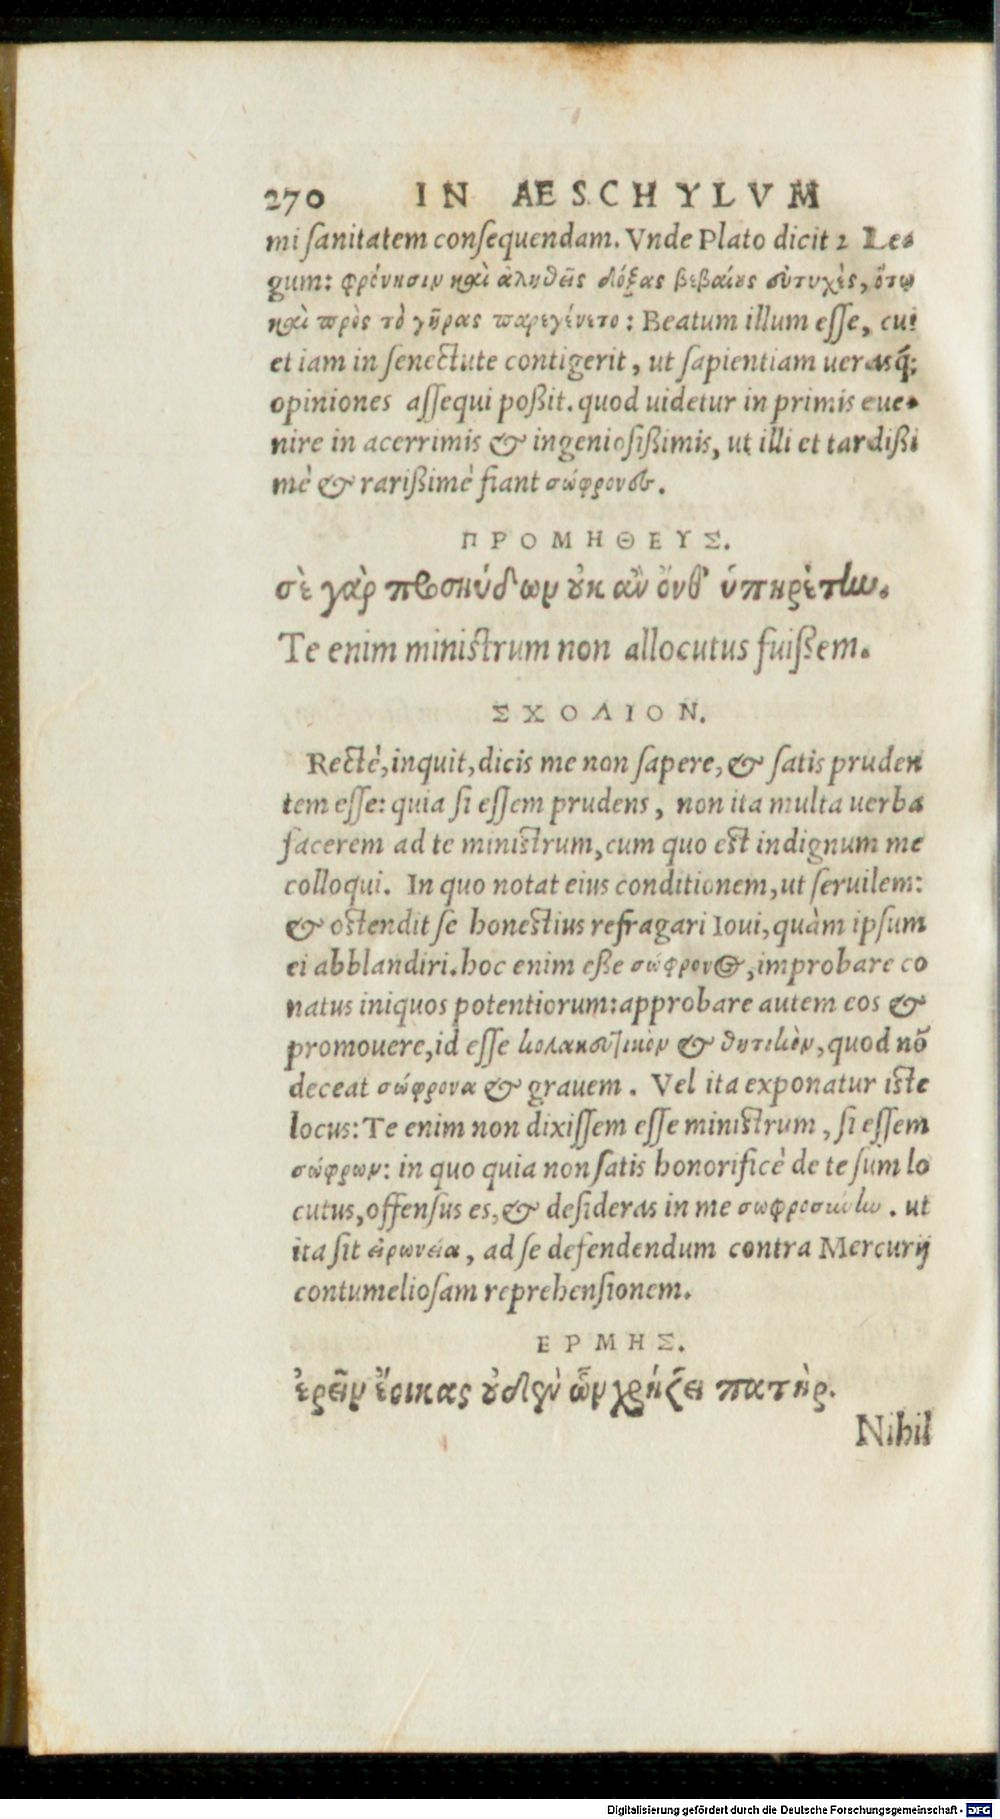 270 IN AESCHYLVM
mi sanitatem consequendam. Vnde Plato dicit 2 Le-
gum: φρόνησιν καὶ ἀληθεῖς δόξας βεβαίους εὐτυχὲς, ὅτῳ
καὶ πρὸς τὸ γῆρας παρεγένετο: Beatum illum esse, cui
et iam in senectute contigerit, ut sapientiam uerasq́;
opiniones assequi poßit. quod uidetur in primis eue-
nire in acerrimis & ingeniosißimis, ut illi et tardißi
mè & rarißimè fiant σώφρονες.
ΠΡΟΜΗΘΕΥΣ.
σὲ γὰρ προσηύδων οὐκ ἂν ὄνθ' ὑπηρέτην.
Te enim ministrum non allocutus fuißem.
ΣΧΟΛΙΟΝ.
Rectè, inquit, dicis me non sapere, & satis pruden
tem esse: quia si essem prudens, non ita multa uerba
facerem ad te ministrum, cum quo est indignum me
colloqui. In quo notat eius conditionem, ut seruilem:
& ostendit se honestius refragari Ioui, quàm ipsum
ei abblandiri. hoc enim eße σώφρονος, improbare co
natus iniquos potentiorum: approbare autem eos &
promouere, id esse κολακευτικὸν & θητικὸν, quod nō
deceat σώφρονα & grauem. Vel ita exponatur iste
locus: Te enim non dixissem esse ministrum, si essem
σώφρων: in quo quia non satis honorificè de te sum lo
cutus, offensus es, & desideras in me σωφροσύνην. ut
ita sit εἰρωνεία, ad se defendendum contra Mercurij
contumeliosam reprehensionem.
ΕΡΜΗΣ.
ἐρεῖν ἔοικας οὐδὲν ὧν χρῄζει πατὴρ.
Nihil
Digitalisierung gefördert durch die Deutsche Forschungsgemeinschaft - DFG